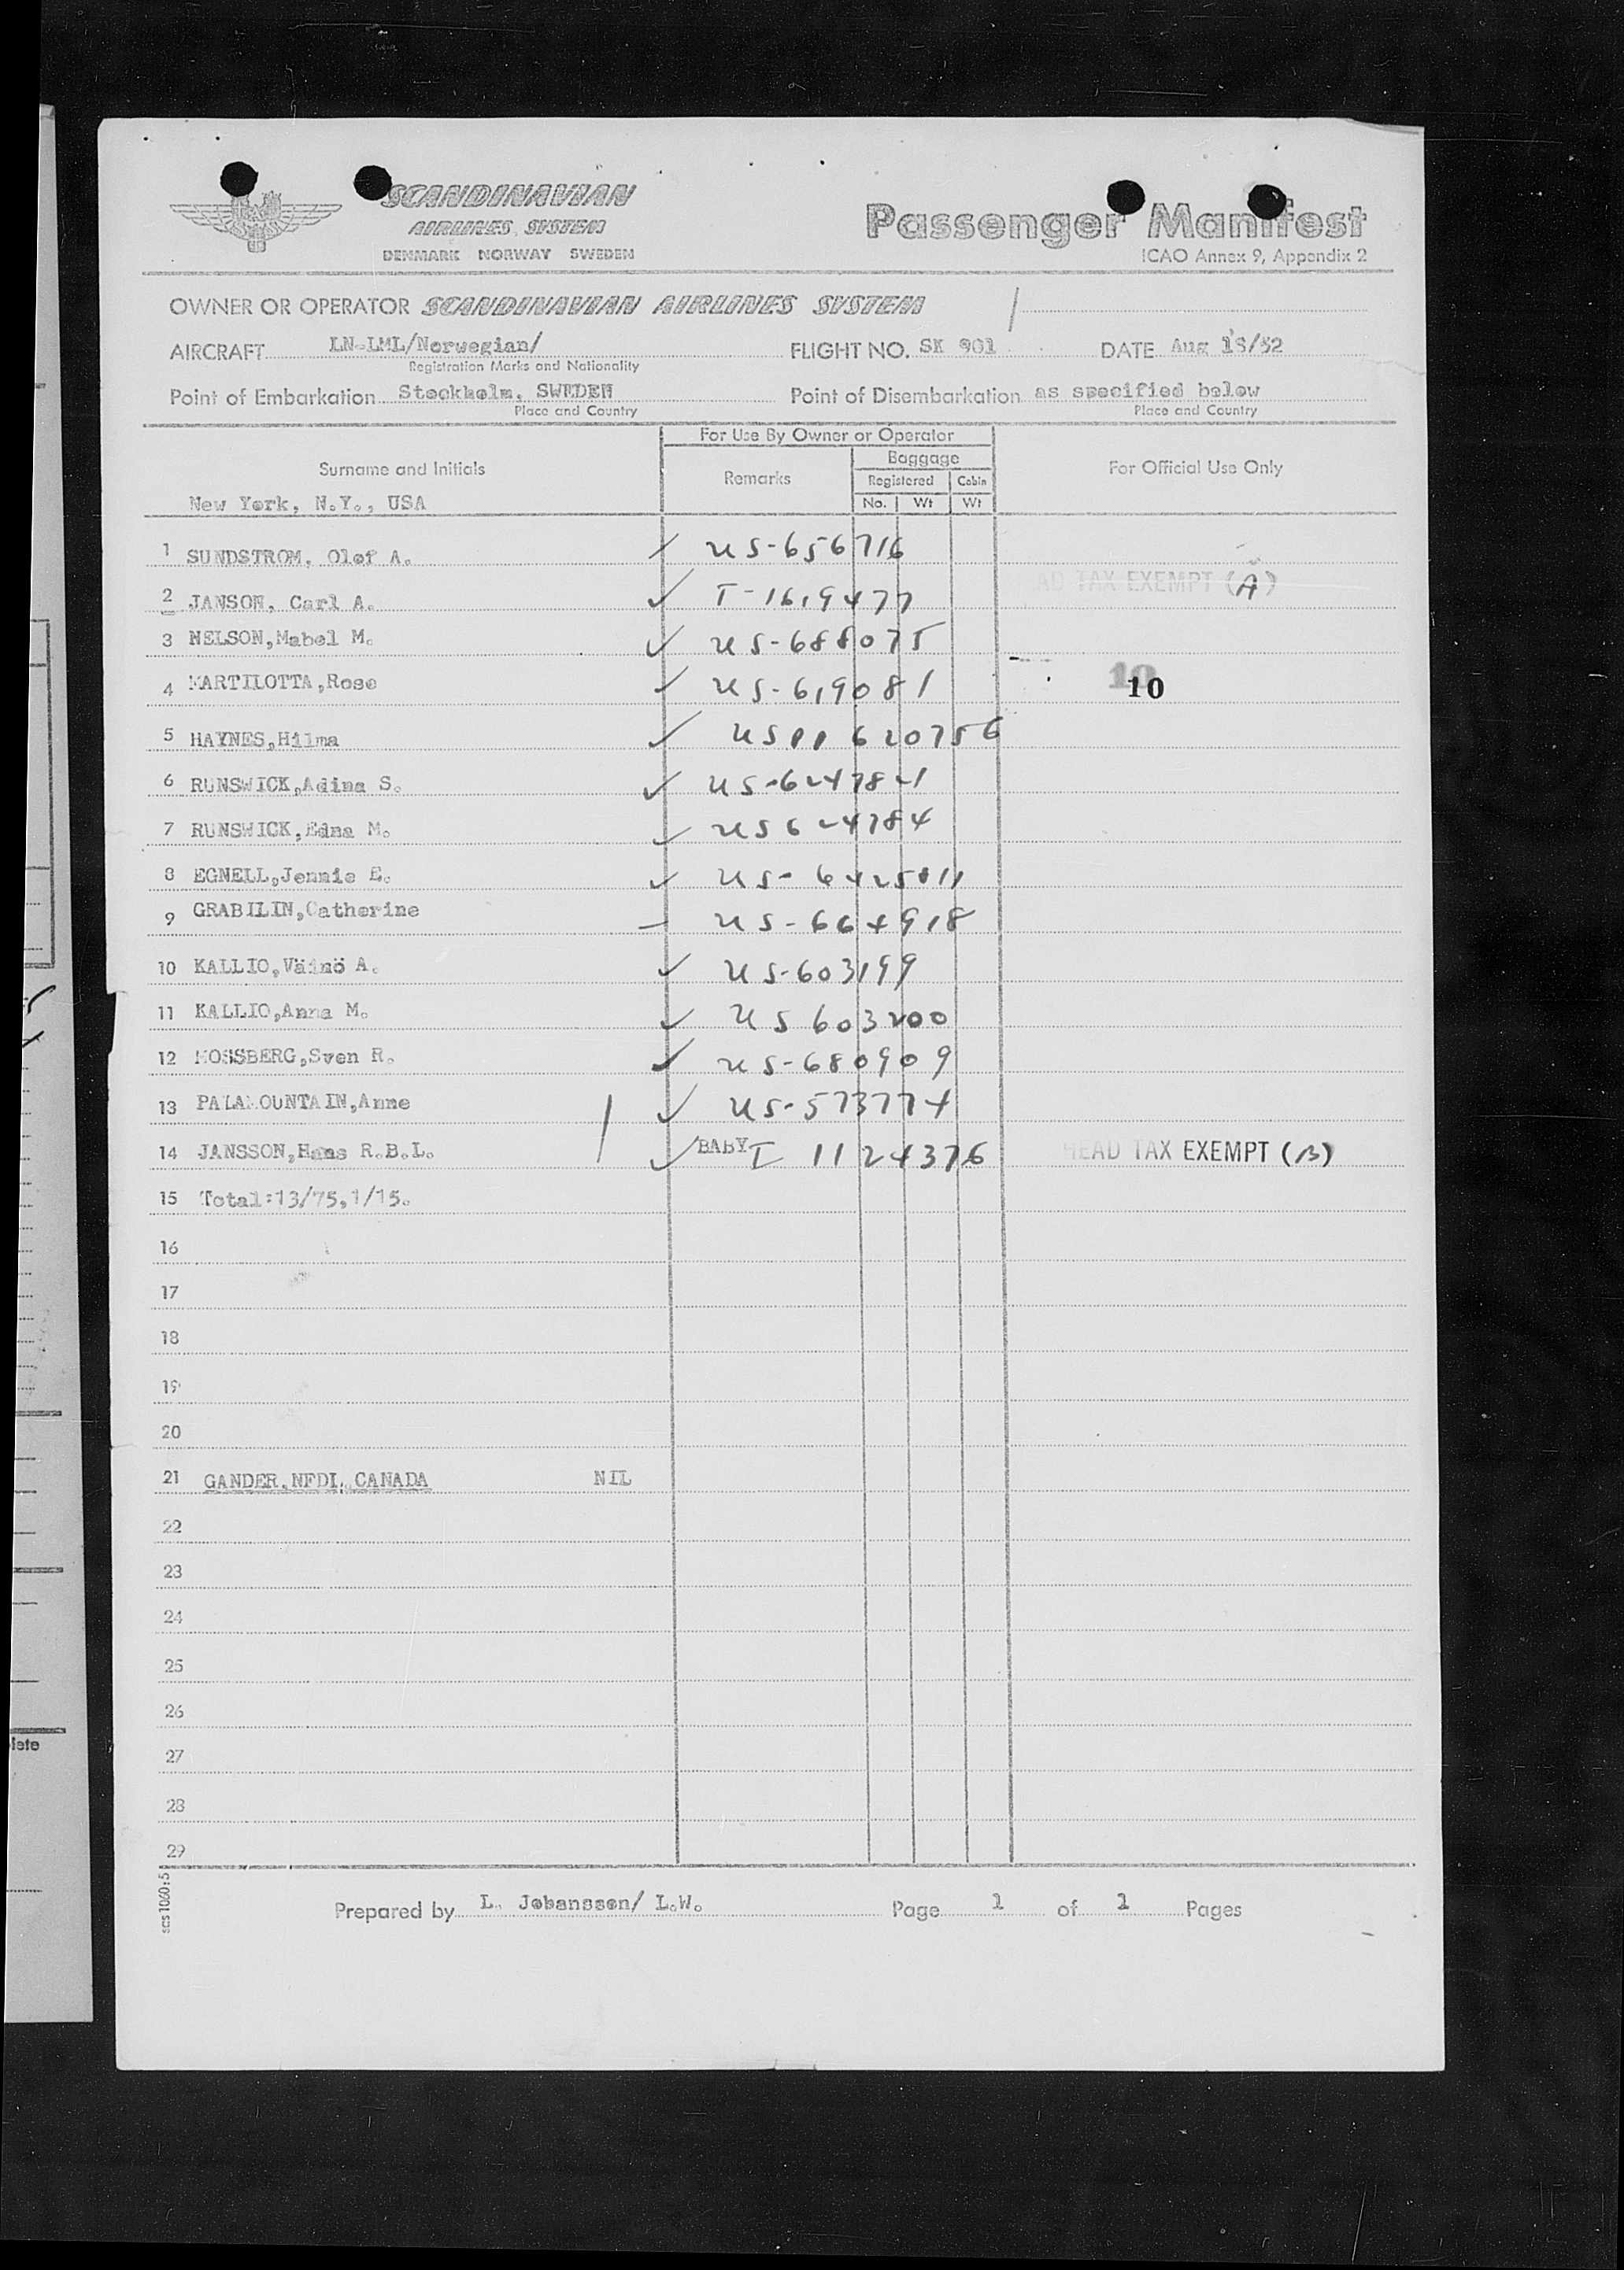 SCANDINAVIAN
AIRLINES SYSTEM
DENMARK NORWAY SWEDEN
Passenger Manifest
ICAO Annex 9, Appendix 2
OWNER OR OPERATOR SCANDINAVIAN AIRLINES SYSTEM
AIRCRAFT LN-LML/Norwegian/ FLIGHT NO. SK 901 DATE Aug /52
Registration Marks and Nationality
Point of Embarkation Stockholm, SWEDEN Point of Disembarkation as specified below
Place and Country Place and Country
For Use By Owner or Operator
Surname and Initials Remarks Baggage For Official Use Only
Registered Cabin
New York, N.Y., USA No. Wt Wt
1 SUNDSTROM, Olof A. ✓ US-656716
HEAD TAX EXEMPT (A)
2 JANSON, Carl A. ✓ T-1619477
3 NELSON,Mabel M. ✓ US-688075
4 MARTILOTTA,Rose ✓ US-619081 10
5 HAYNES,Hilma ✓ US 620756
6 RUNSWICK,Adina S. ✓ US-624781
7 RUNSWICK,Edna M. ✓ US624784
8 EGNELL,Jennie E. ✓ US-
9 GRABILIN,Catherine US-664918
10 KALLIO,Väinö A. ✓ US-603199
11 KALLIO,Anna M. ✓ US 603200
12 MOSSBERG,Sven R. ✓ US-680909
13 PALAMOUNTAIN,Anne ✓ US-573774
14 JANSSON,Hans R.B.L. ✓ BABY I 1124376 HEAD TAX EXEMPT (B)
15 Total:13/75,1/15.
16
17
18
19
20
21 GANDER,NFDL,CANADA NIL
22
23
24
25
26
27
28
29
scs 1060:5
Prepared by L. Johansson/ L.W. Page 1 of 1 Pages